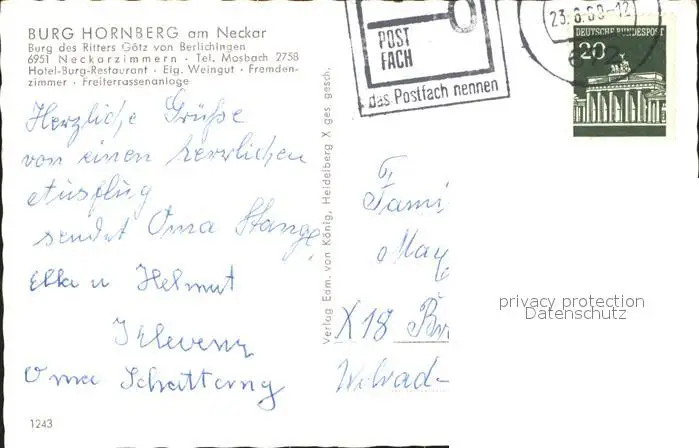 BURG HORNBERG am Neckar
Burg des Ritters Götz von Berlichingen
6951 Neckarzimmern · Tel. Mosbach 2758
Hotel-Burg-Restaurant · Eig. Weingut · Fremden-
zimmer · Freiterrassenanlage
POST
FACH
das Postfach nennen
23.6.68-12
DEUTSCHE BUNDESPOST
20
Herzliche Grüße
von einen herrlichen
Ausflug
sendet Oma Stange,
Ella u Helmut
Oma
Verlag Edm. von König, Heidelberg X ges gesch.
Fami
May
X18 Br
privacy protection
Datenschutz
1243